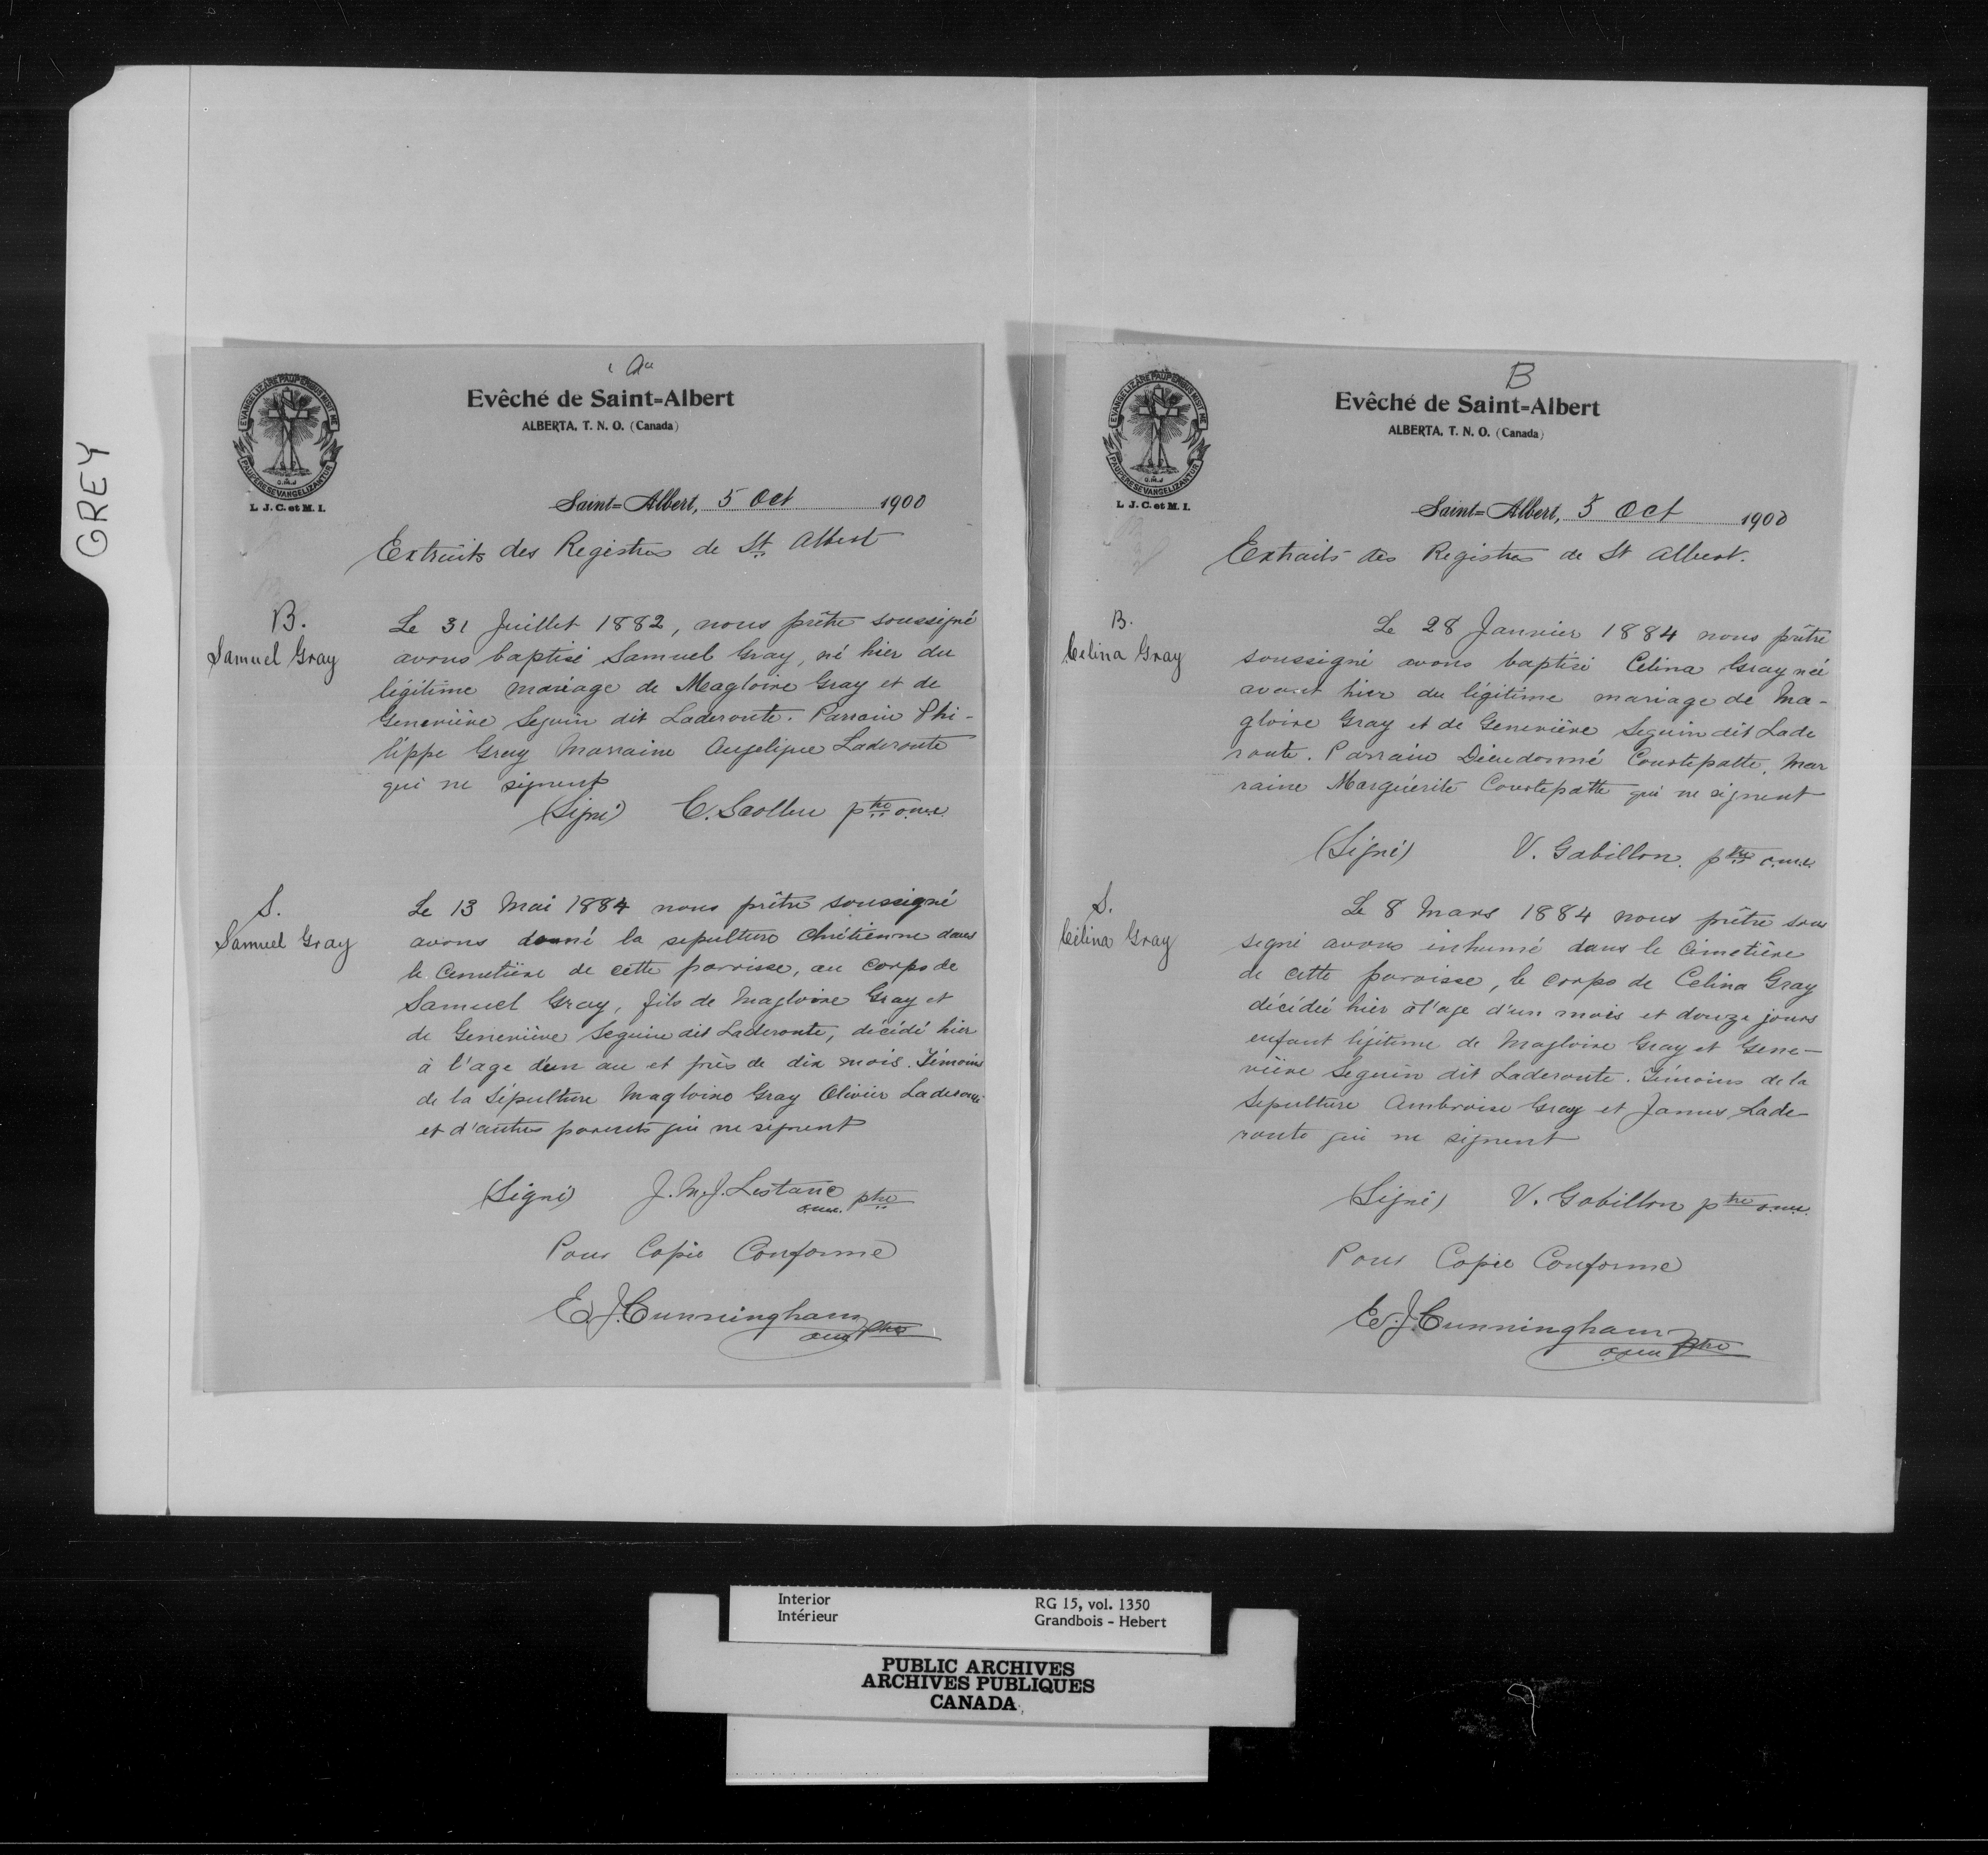 GREY
A
Evêché de Saint-Albert
ALBERTA, T. N. O. (Canada)
EVANGELIZARE PAUPERIBUS MISIT ME
PAUPERES EVANGELIZANTUR
O.M.J
L. J. C. et M. I.
Saint-Albert, 5 Oct 1900
Extraits des Registres de St Albert
B.
Samuel Gray
Le 31 Juillet 1882, nous prêtre soussigné
avons baptisé Samuel Gray, né hier du
légitime mariage de Magloire Gray et de
Geneviève Seguin dit Laderoute. Parrain Phi-
lippe Gray Marraine Angelique Laderoute
qui ne signent
(Signé) C. Scollen ptre o.m.i.
S.
Samuel Gray
Le 13 Mai 1884 nous prêtre soussigné
avons donné la sepulture Chrétienne dans
le Cemetière de cette parroisse, au corps de
Samuel Gray, fils de Magloire Gray et
de Geneviève Seguin dit Laderoute, décédé hier
à l'age d'un an et près de dix mois. Témoins
de la Sépulture Magloire Gray Olivier Laderoute
et d'autres parents qui ne signent
(Signé) J. M. J. Lestanc ptre
o.m.i.
Pour Copie Conforme
E. J. Cunningham
omi ptre
B
Evêché de Saint-Albert
ALBERTA, T. N. O. (Canada)
EVANGELIZARE PAUPERIBUS MISIT ME
PAUPERES EVANGELIZANTUR
O.M.J
L. J. C. et M. I.
Saint-Albert, 5 Oct 1900
Extraits des Registres de St Albert.
B.
Celina Gray
Le 28 Janvier 1884 nous prêtre
soussigné avons baptisé Celina Gray née
avant hier du légitime mariage de Ma-
gloire Gray et de Geneviève Seguin dit Lade
route. Parrain Dieudonné Courtepatte, Mar
raine Marguérite Courtepatte qui ne signent
(Signé) V. Gabillon. ptre o.m.i.
S.
Célina Gray
Le 8 Mars 1884 nous prêtre sous
signé avons inhumé dans le Cimetière
de cette paroisse, le corps de Celina Gray
décédée hier à l'age d'un mois et douze jours
enfant légitime de Magloire Gray et Gene-
viève Seguin dit Laderoute. Témoins de la
Sepulture Ambroise Gray et James Lade-
route qui ne signent
(Signé) V. Gabillon ptre o.m.i.
Pour Copie Conforme
E. J. Cunningham
o.m.i ptre
Interior
Intérieur
RG 15, vol. 1350
Grandbois - Hebert
PUBLIC ARCHIVES
ARCHIVES PUBLIQUES
CANADA